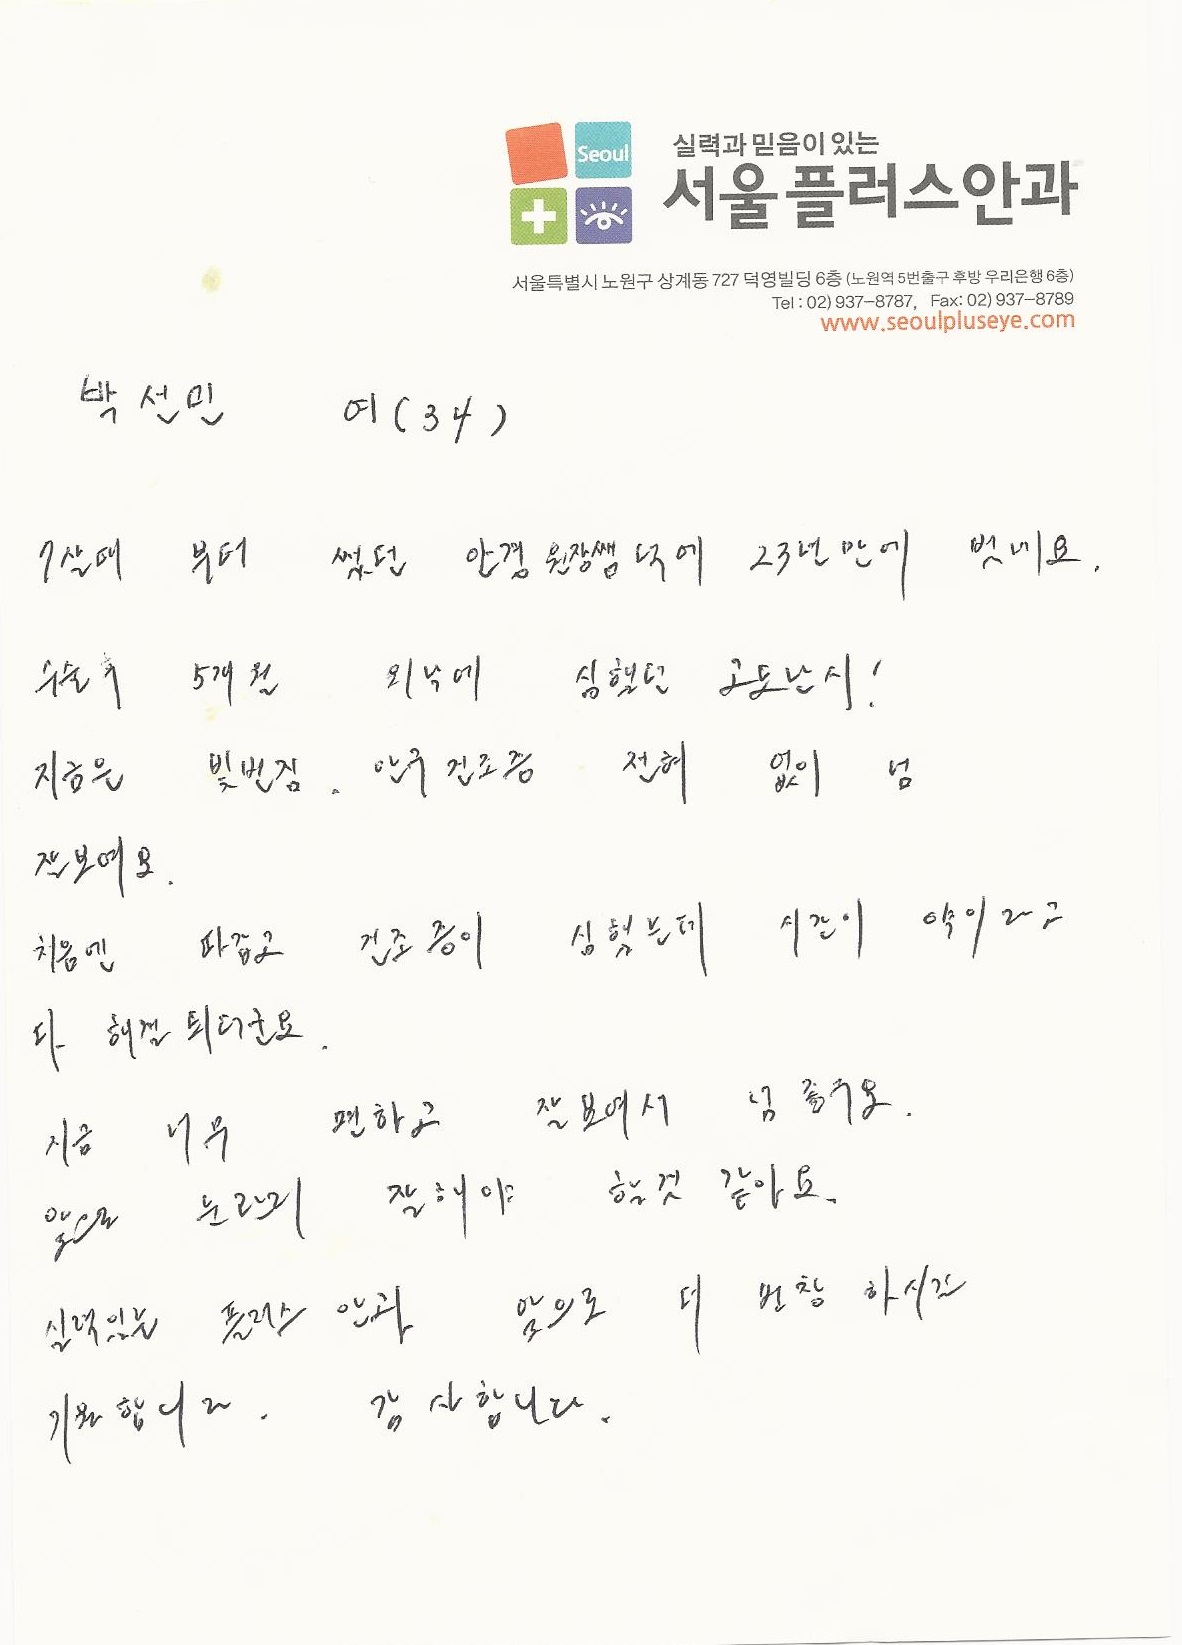 Seoul
실력과 믿음이 있는
서울플러스안과
서울특별시 노원구 상계동 727 덕영빌딩 6층 (노원역 5번출구 후방 우리은행 6층)
Tel : 02) 937-8787, Fax: 02) 937-8789
www.seoulpluseye.com
박선민 여(34)
7살때 부터 썼던 안경 원장쌤 덕에 23년만에 벗네요.
수술후 5개월 외낙에 심했던 고도난시!
지금은 빛번짐. 안구건조증 전혀 없이 넘
잘보여요.
처음엔 따갑고 건조증이 심했는데 시간이 약이라고
다 해결되더군요.
지금 너무 편하고 잘보여서 넘 좋구요.
앞으로 눈관리 잘해야 할것 같아요.
실력있는 플러스 안과 앞으로 더 번창 하시길
기원합니다. 감사합니다.